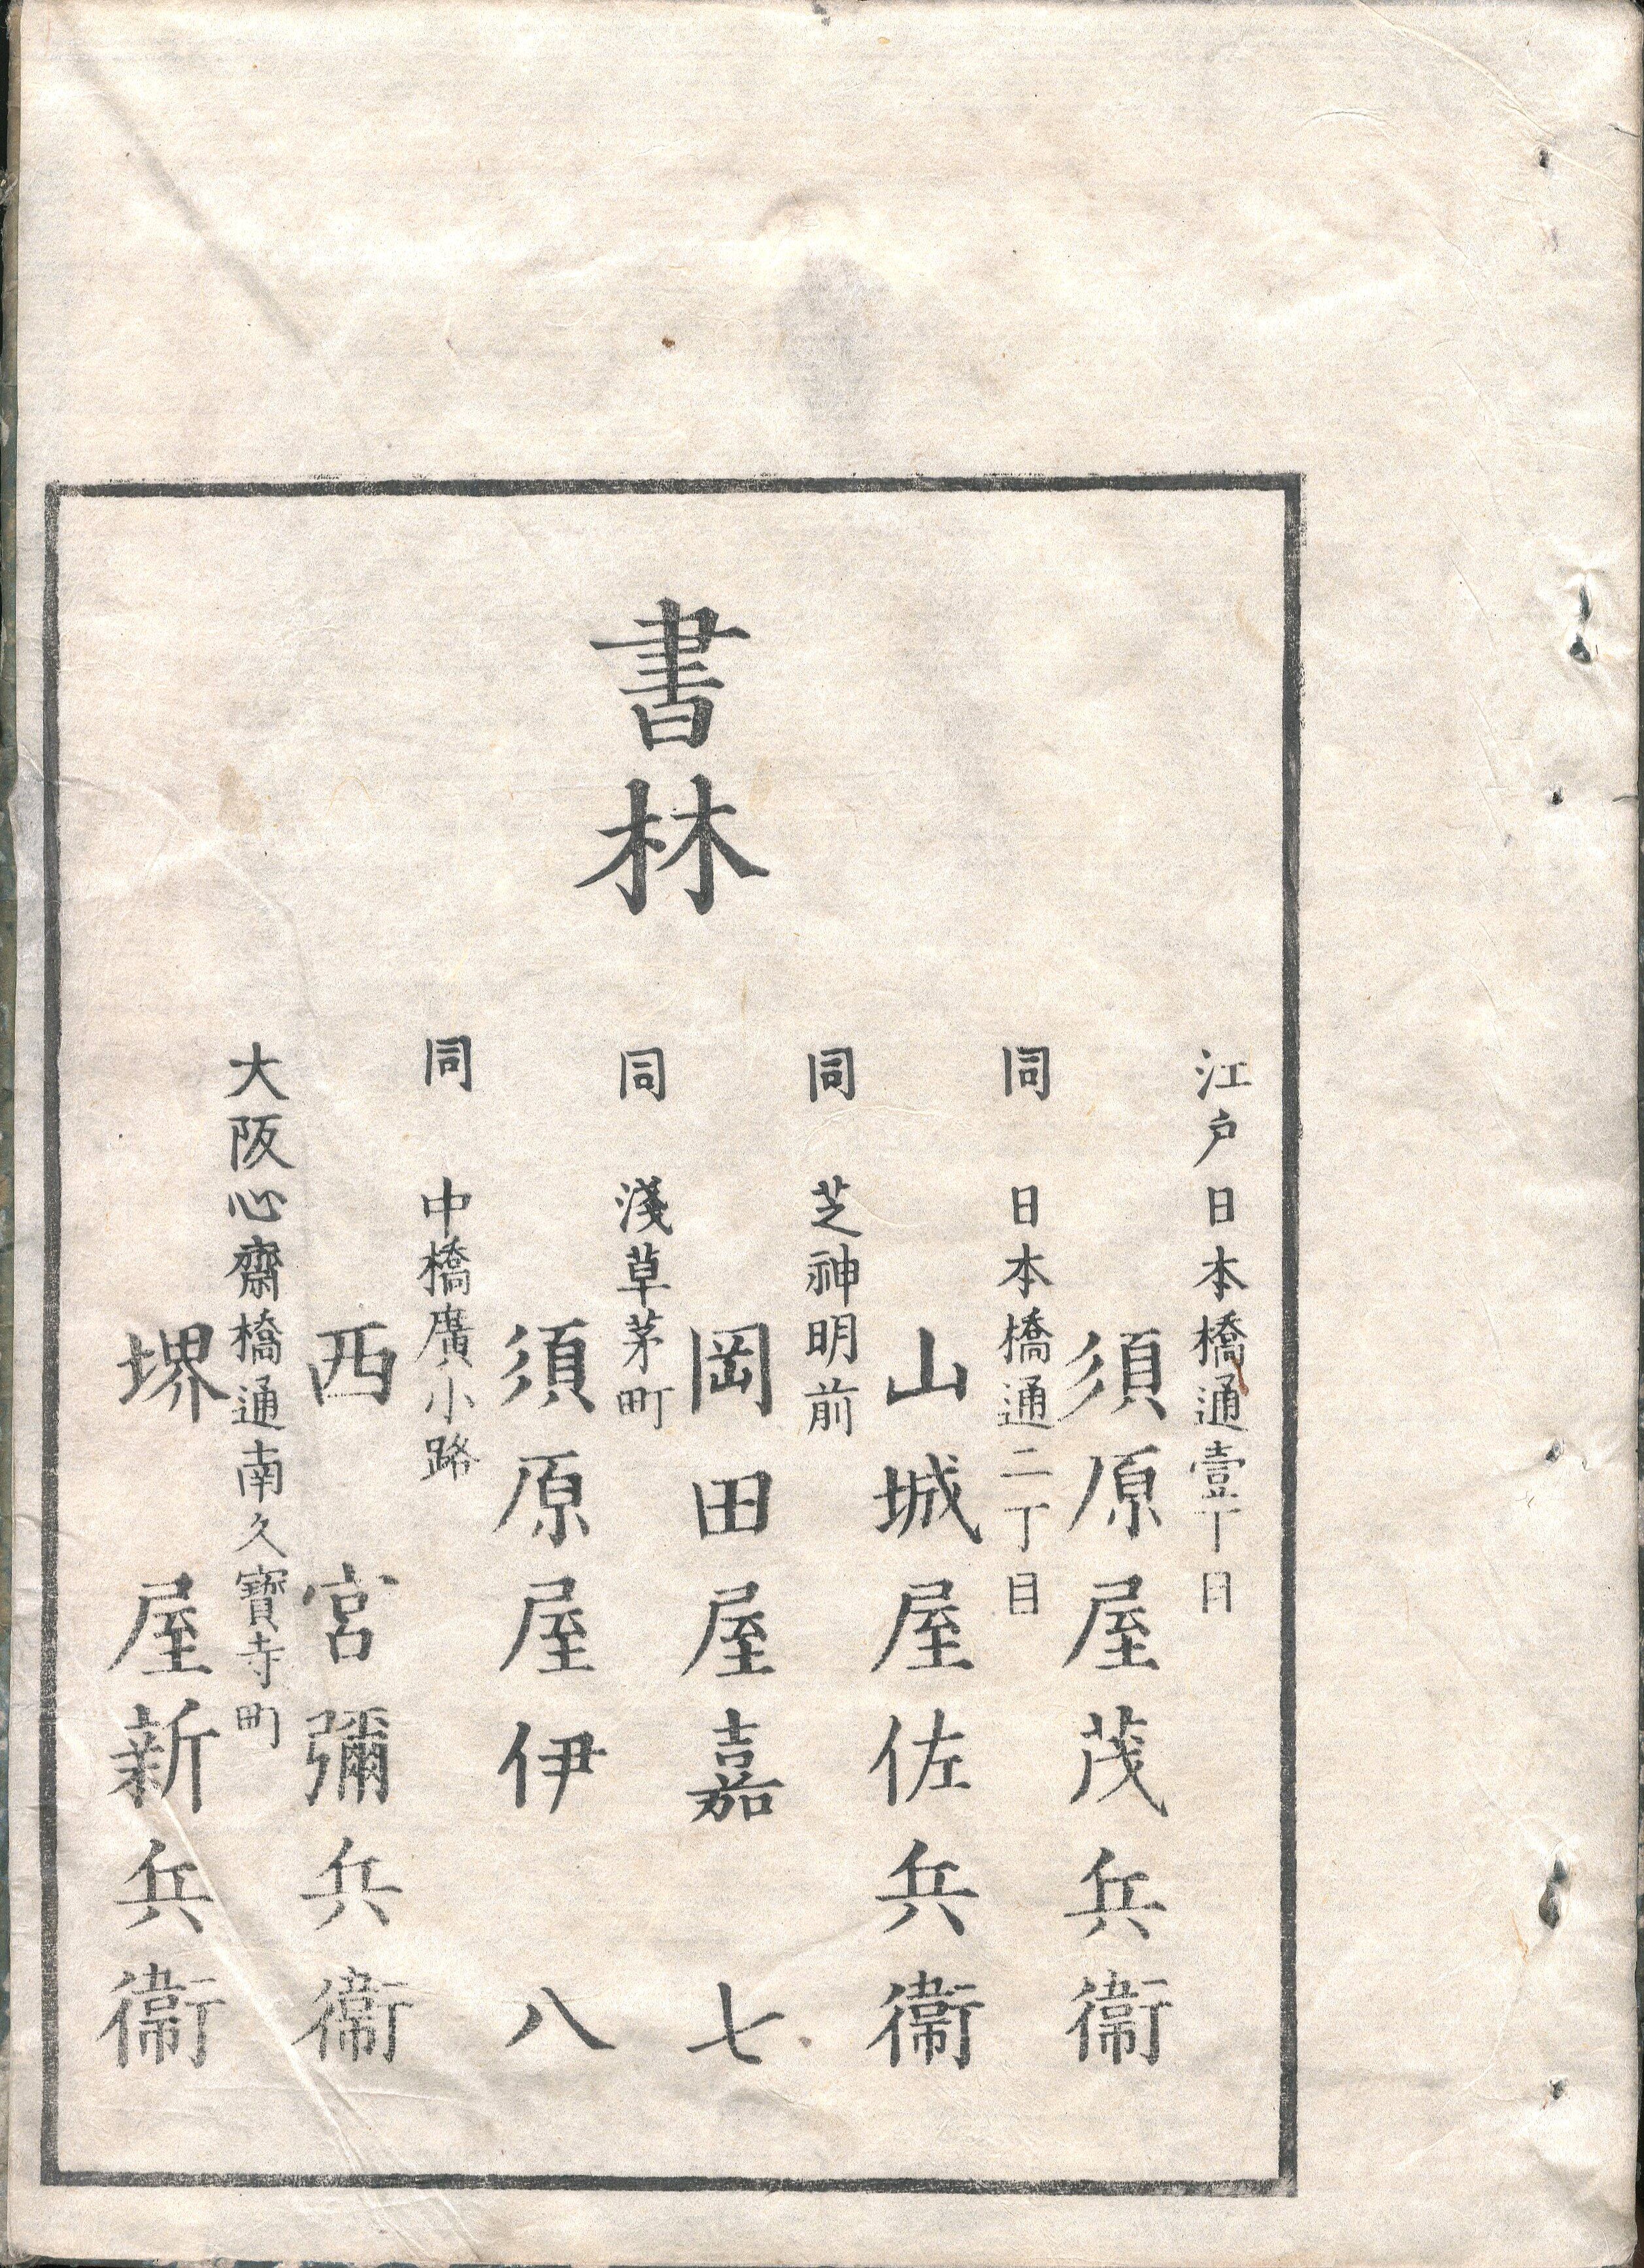 書林
江戸日本橋通壹丁目
須原屋茂兵衞
同 日本橋通二丁目
山城屋佐兵衞
同 芝神明前
岡田屋嘉七
同 淺草茅町
須原屋伊八
同 中橋廣小路
西宮彌兵衞
大阪心齋橋通南久寶寺町
堺屋新兵衞